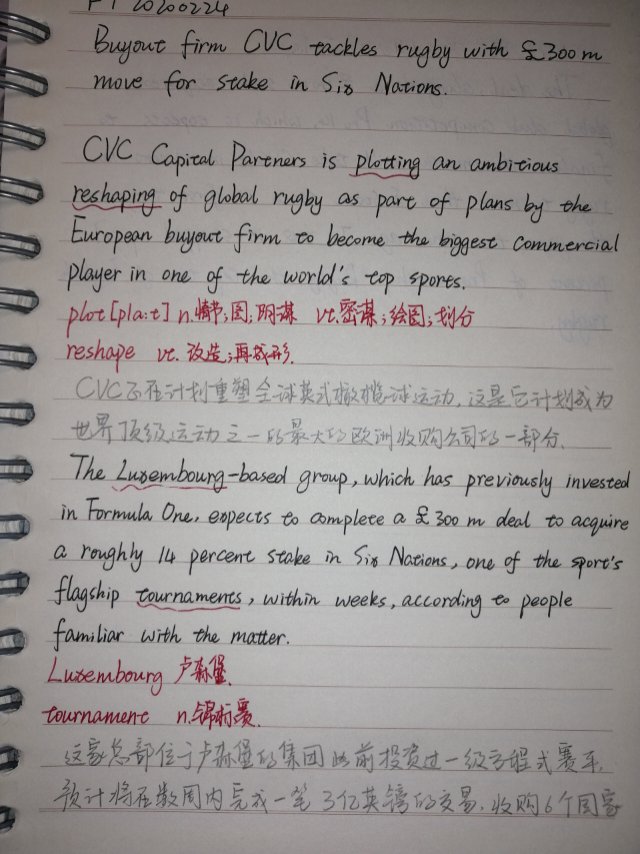 FT 20200224
Buyout firm CVC tackles rugby with £300m
move for stake in Six Nations.
CVC Capital Partners is plotting an ambitious
reshaping of global rugby as part of plans by the
European buyout firm to become the biggest commercial
player in one of the world's top sports.
plot [pla:t] n.情节;图;阴谋 vt.密谋;绘图;划分
reshape vt. 改造;再成形.
CVC正在计划重塑全球英式橄榄球运动,这是它计划成为
世界顶级运动之一的最大的欧洲收购公司的一部分.
The Luxembourg-based group, which has previously invested
in Formula One, expects to complete a £300m deal to acquire
a roughly 14 percent stake in Six Nations, one of the sport's
flagship tournaments, within weeks, according to people
familiar with the matter.
Luxembourg 卢森堡.
tournament n.锦标赛.
这家总部位于卢森堡的集团此前投资过一级方程式赛车,
预计将在数周内完成一笔3亿英镑的交易,收购6个国家